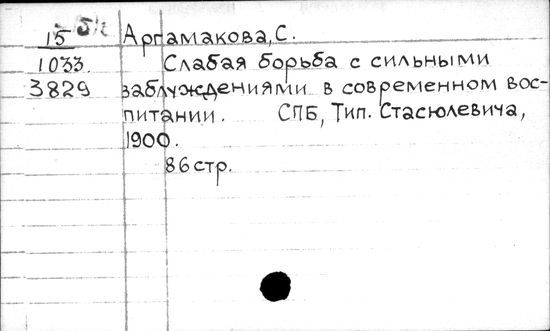 15 Аргамакова, С.
1033. Слабая борьба с сильными
3829 заблуждениями в современном вос-
питании. СПБ, Тип. Стасюлевича,
1900.
86 стр.